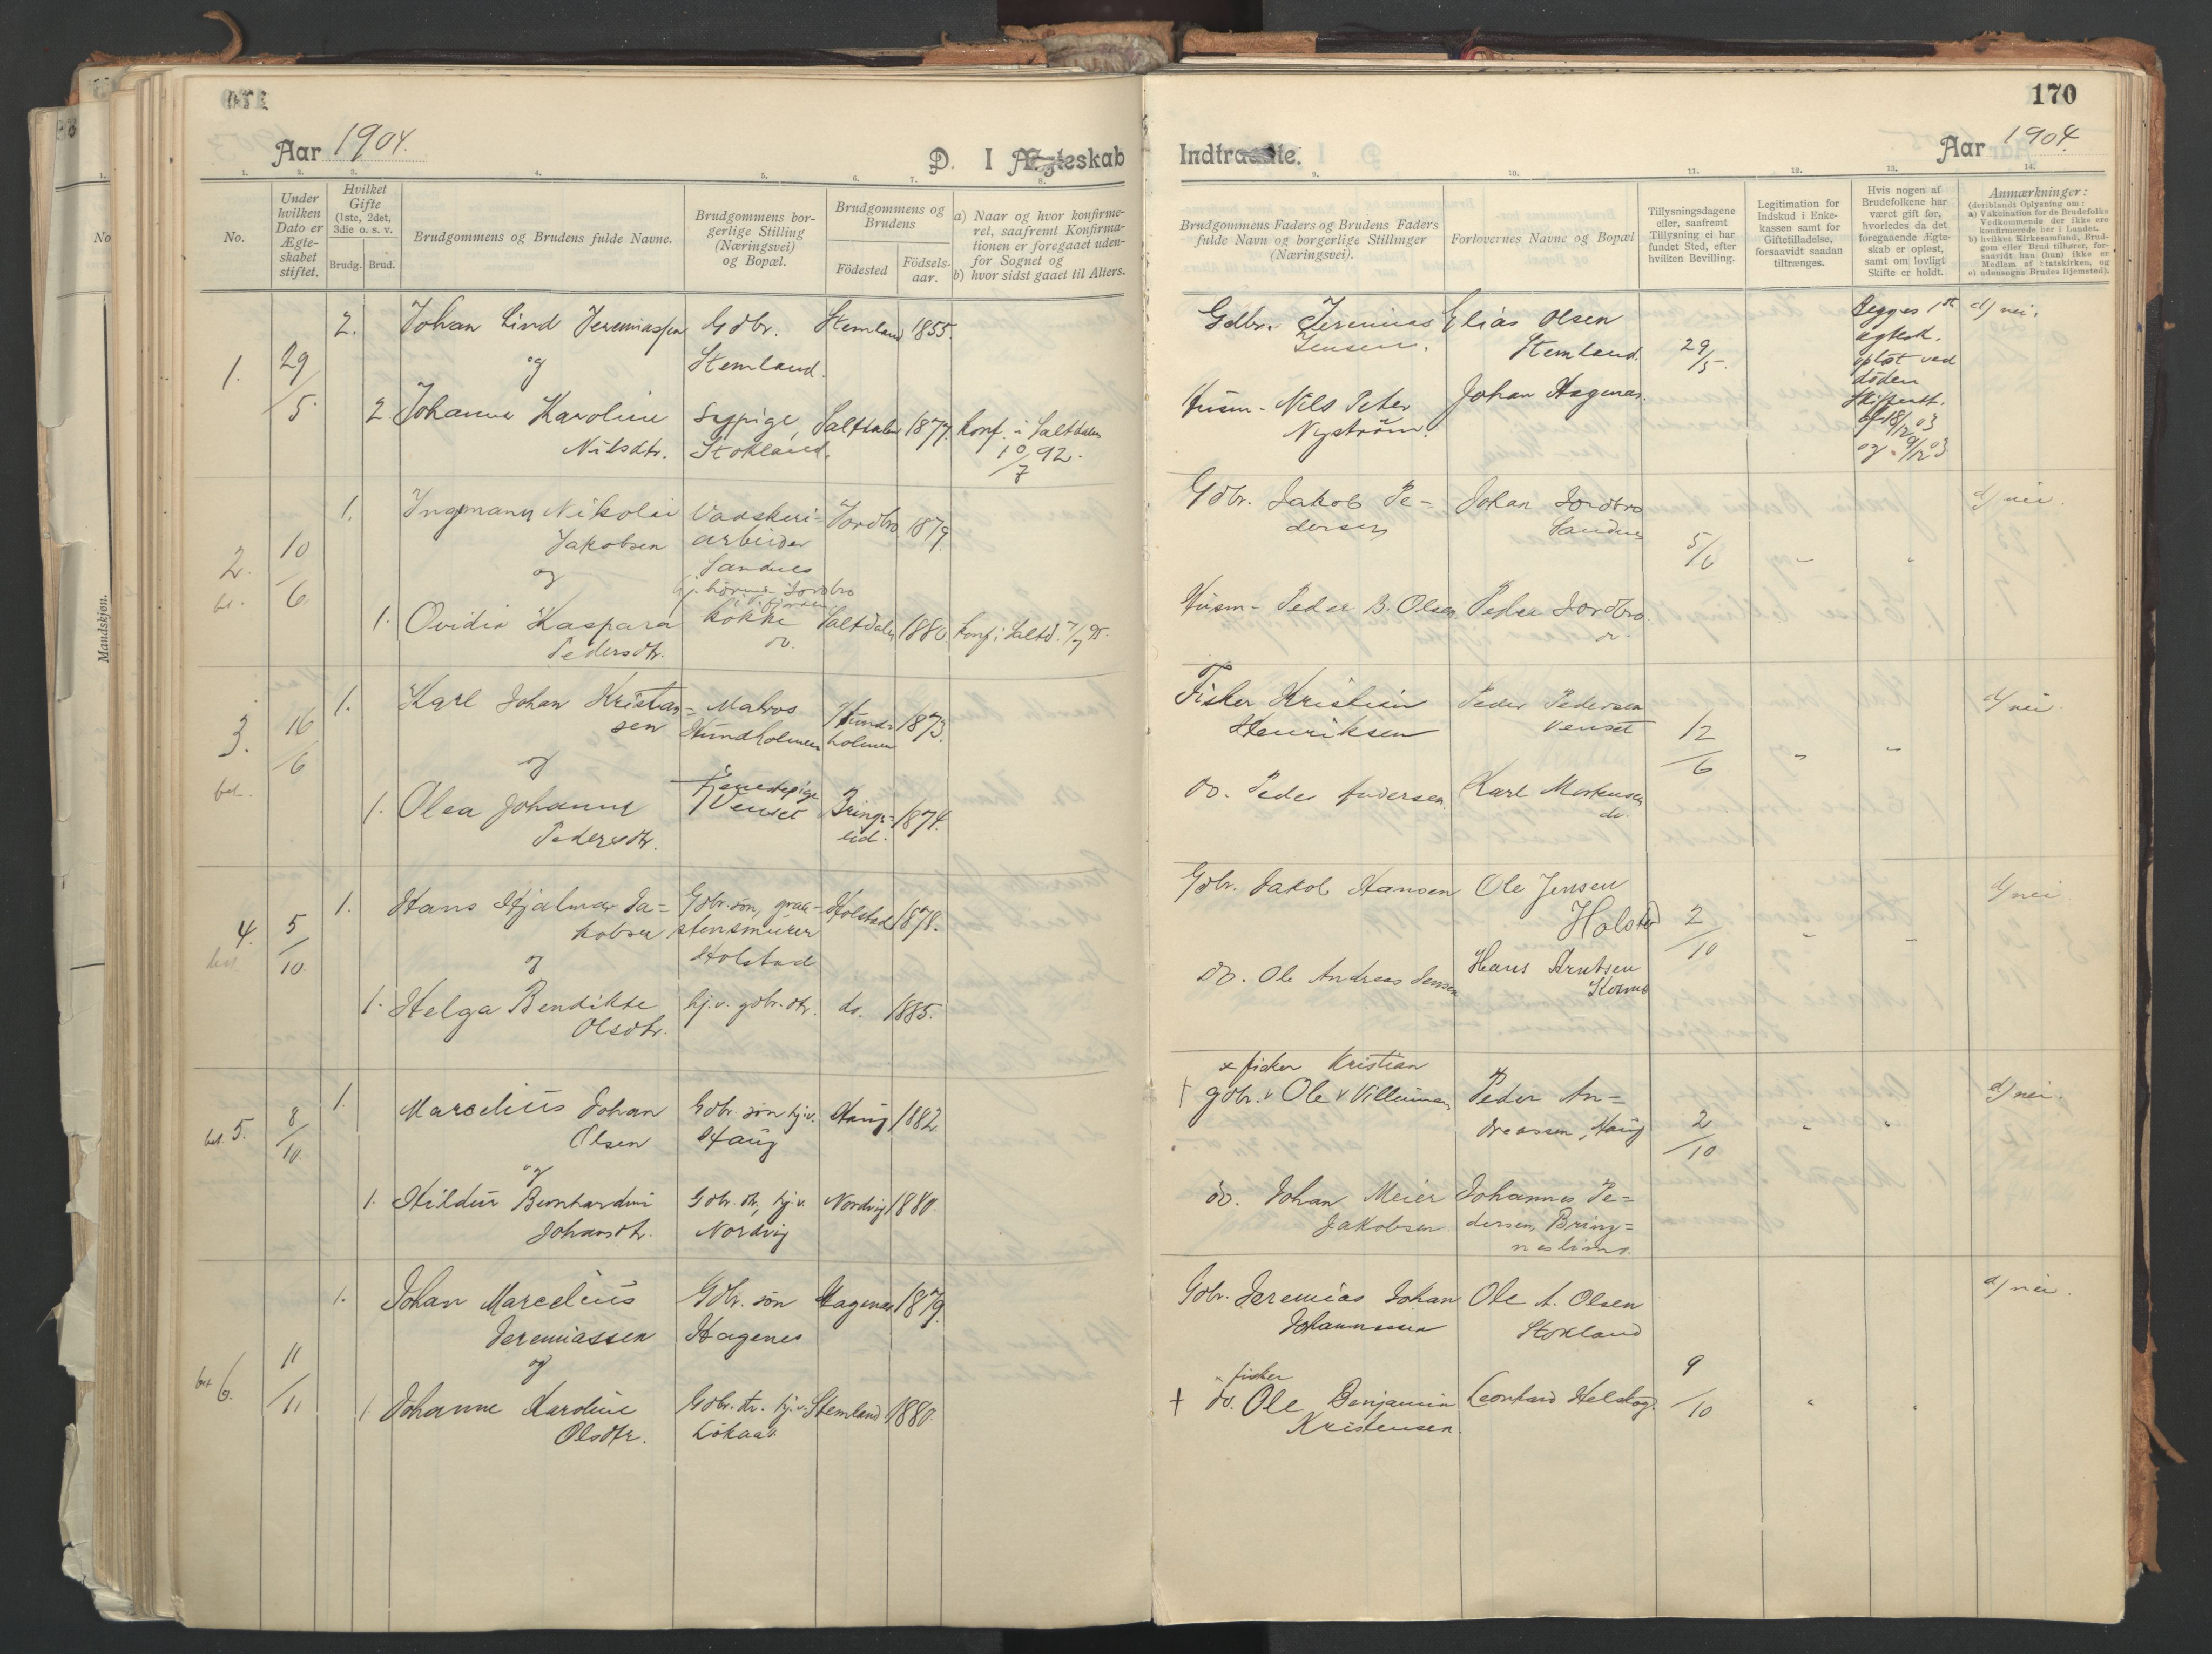 170
Aar 1904.
D. I Ægteskab
Indtraadte.
Aar 1904.
1.
2.
3.
4.
5.
6.
7.
8.
9.
10.
11.
12.
13.
14.
No.
Under
hvilken
Dato er
Ægte-
skabet
stiftet.
Hvilket
Gifte
(1ste, 2det,
3die o. s. v.
Brudg.
Brud.
Brudgommens og Brudens fulde Navne.
Brudgommens bor-
gerlige Stilling
(Næringsvei)
og Bopæl.
Brudgommens og
Brudens
Fødested
Fødsels-
aar.
a) Naar og hvor konfirme-
ret, saafremt Konfirma-
tionen er foregaaet uden-
for Sognet og
b) hvor sidst gaaet til Alters.
Brudgommens Faders og Brudens Faders
fulde Navn og borgerlige Stillinger
(Næringsvei).
Forlovernes Navne og Bopæl
Tillysningsdagene
eller, saafremt
Tillysning ei har
fundet Sted, efter
hvilken Bevilling.
Legitimation for
Indskud i Enke-
kassen samt for
Giftetilladelse,
forsaavidt saadan
tiltrænges.
Hvis nogen af
Brudefolkene har
været gift før,
hvorledes da det
foregaaende Ægte-
skab er opløst,
samt om lovligt
Skifte er holdt.
Anmærkninger:
(deriblandt Oplysning om:
a) Vakcination for de Brudefolks
Vedkommende der ikke ere
konfirmerede her i Landet.
b) hvilket Kirkesamfund, Brud-
gom eller Brud tilhører, for-
saavidt han (hun) ikke er
Medlem af Statskirken, og
c) udensogns Brudes Hjemsted).
No
Mandskjøn.
1.
29/5
2. Johan Lind Jeremiassen
og
2. Johanna Karoline
Nilsdtr.
Gdbr.
Stemland.
Sypige,
Stokland.
Stemland 1855.
Saltdalen 1877.
Konf. i Saltdalen
10/7 92.
Gdbr. Jeremias
Jensen.
Husm. Nils Peter
Nyström.
Elias Olsen
Stemland.
Johan Hagenæs
29/5.
Begges 1ste
ægtesk.
opløst ved
døden
Skifteatt.
af 18/12 03
og 9/12 03
d) nei.
2.
10/6
1. Ingmann Nikolai
Jakobsen
og
1. Ovidia Kaspara
Pedersdtr.
arbeider
Sandnes
Kokke
do.
Jordbro 1879.
Saltdalen 1880
Konf. i Saltd. 7/7 95.
Gdbr. Jakob Pe-
dersen
Husm. Peder B. Olsen
Johan Jordbro
Sandnes
Peder Jordbro.
do.
5/6
"
"
d) nei.
3.
bet.
16/6
1. Karl Johan Kristian-
sen
og
1. Olea Johanna
Pedersdtr.
Matros
Hundholmen
Tjenestepige
Venset
Hund-
holmen 1873.
Brings-
lid. 1874.
Fisker Kristian
Henriksen
do. Peder Andersen.
Peder Pedersen
Venset
Karl Mortensen
do.
12/6
"
"
d) nei.
4.
5/10.
1. Hans Hjalmar Ja-
kobsen
og
1. Helga Bendikte
Olsdtr.
Gdbr. søn, graa-
stensmurer
Holstad
hj.v. gdbr. dtr.
Holstad 1878.
do. 1885.
Gdbr. Jakob Hansen
do. Ole Andreas Jensen
Ole Jensen
Holstad
Hans Arntsen
2/10
"
"
d) nei.
bet. 5.
8/10.
1. Marcelius Johan
Olsen
og
1. Hildur Bernhardine
Johansdtr.
Gdbr. søn hj.v.
Haug
Gdbr. dtr, hj.v.
Nordvig
Haug 1882.
Nordvig 1880.
x fisker Kristian
† gdbr. v Ole v Villumsen
do. Johan Meier
Jakobsen.
Peder An-
dreassen, Haug
Johannes Pe-
dersen, Bring-
2/10
"
"
d) nei.
bet 6.
11/11
1. Johan Marcelius
Jeremiassen
og
1. Johanne Karoline
Olsdtr.
Gdbr. søn
Hagenes
Gdbr. dtr. hj.v.
Løkaas
Hagenes 1879.
Stemland 1880.
Gdbr. Jeremias Johan
Johannessen
x fisker
† do. Ole Benjamin
Kristensen.
Ole A. Olsen
Stokland
Leonhard Helskog.
9/10
"
"
d) nei.